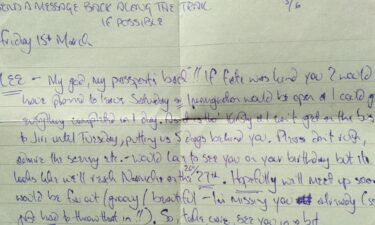 SEND A MESSAGE BACK ALONG THE TREK
IF POSSIBLE
3/6
Friday 15th March
LEE - My god, my passport's back!! If fate was kind you & I would
have planned to leave Saturday as Immigration would be open & I could get
everything completed in 1 day. As it's the 10 day & I can't get on the bus
to Jiri until Tuesday, putting us 5 days behind you. Please don't rush,
admire the scenery etc. - would love to see you on your birthday but it
looks like we'll reach Namche on the 26/27th. Hopefully will meet up soon
would be far out (groovy / beautiful - I'm missing you already (so
just had to throw that in!!). So, take care, see you in a bit